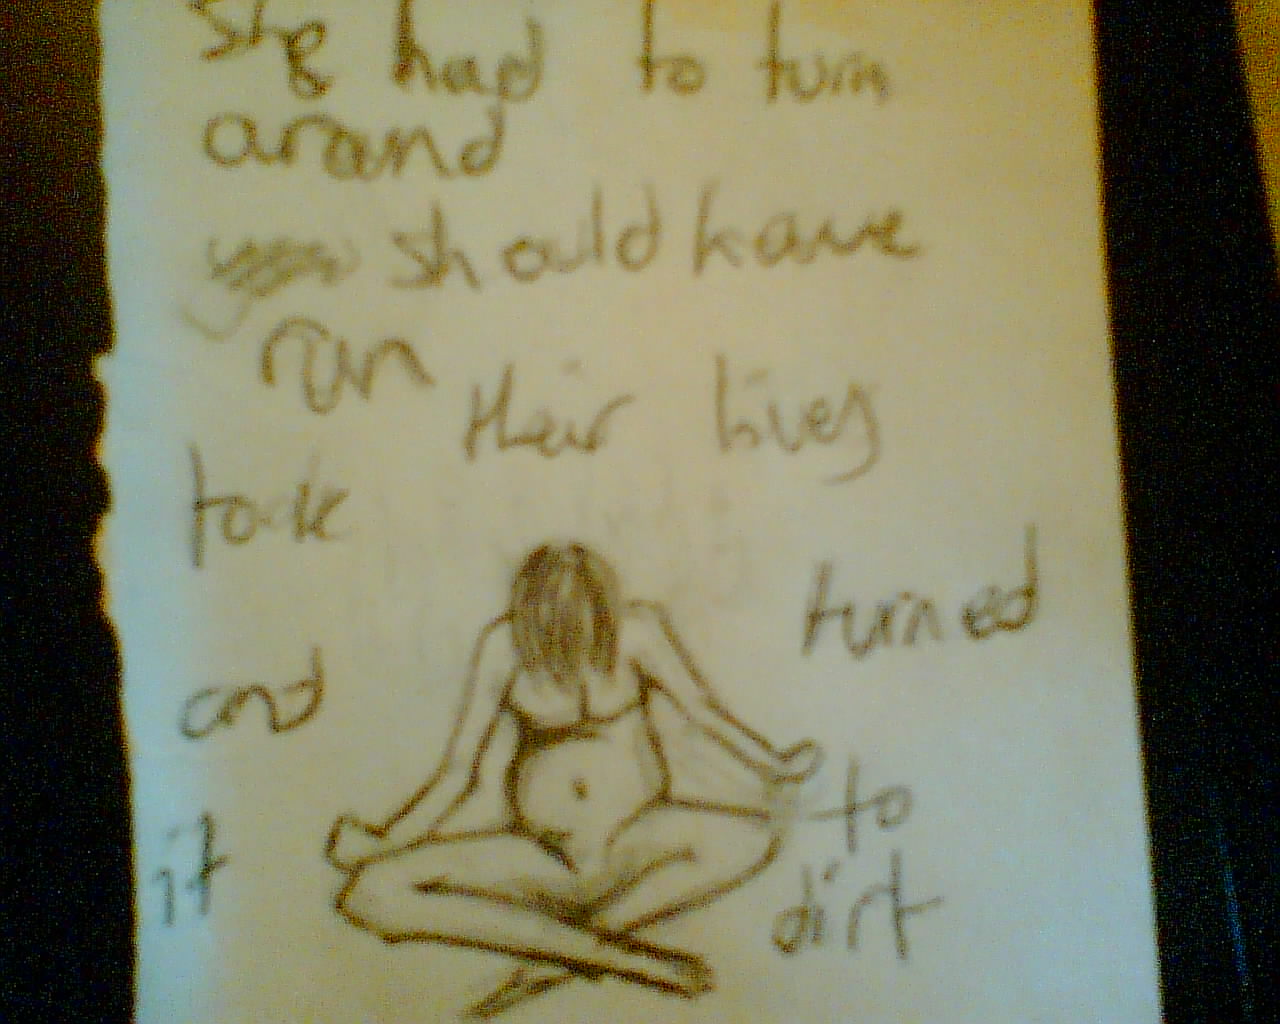 She had to turn
around
should have
ran
their lives
took
turned
and
to
it
dirt